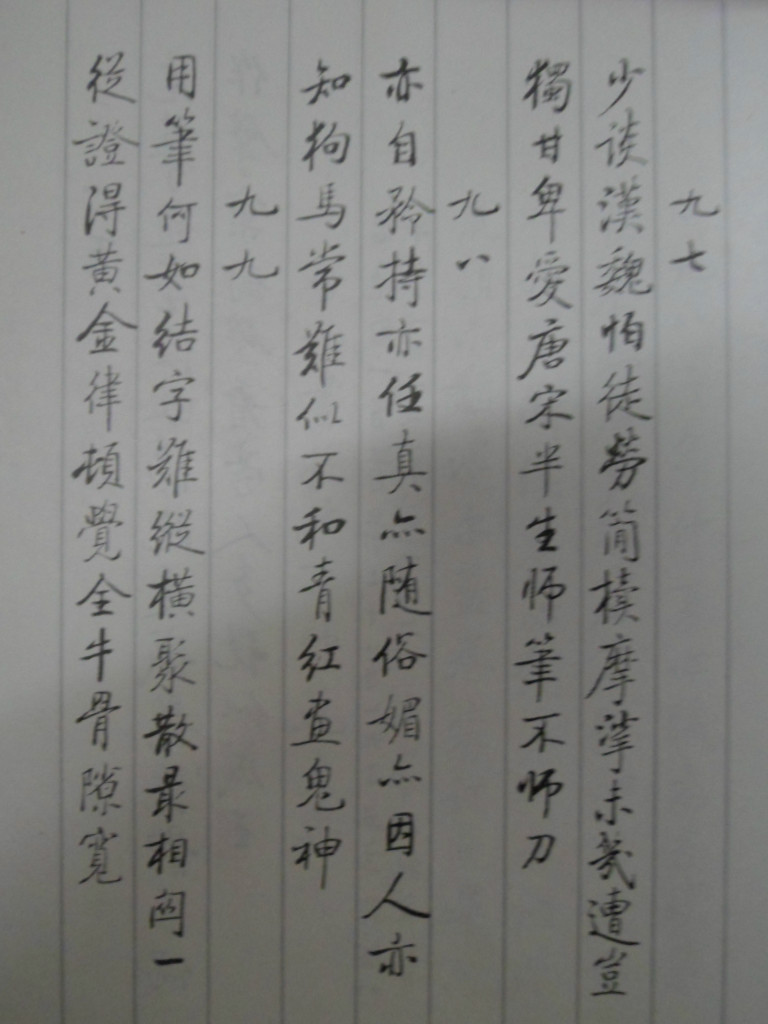 九七
少談漢魏怕徒勞简櫝摩挲未幾遭豈
獨甘卑愛唐宋半生师筆不师刀
九八
亦自矜持亦任真亦随俗媚亦因人亦
知狗馬常難似不和青红畫鬼神
九九
用筆何如結字難縱横聚散最相関一
從證得黃金律頓覺全牛骨隙寬